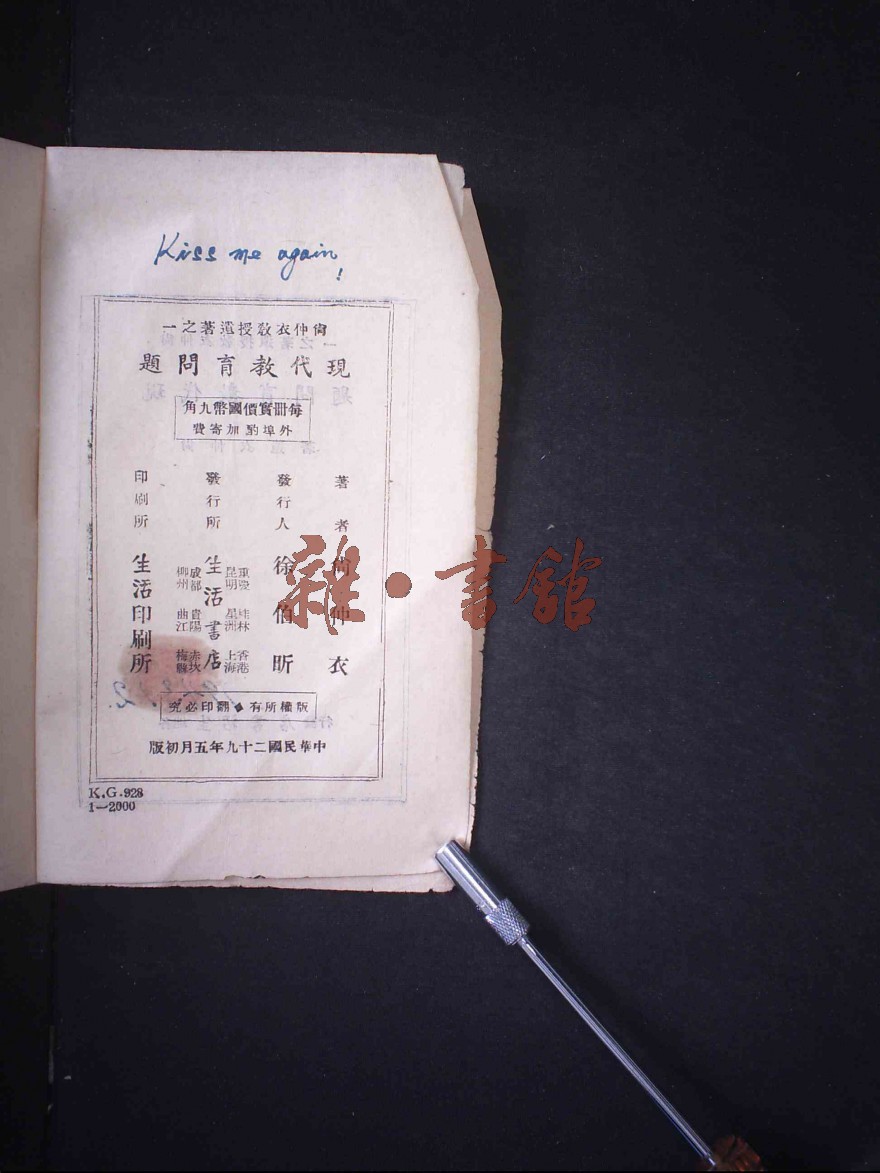 Kiss me again!
尙仲衣敎授遺著之一
現代敎育問題
每冊實價國幣九角
外埠酌加寄費
著者 尙仲衣
發行人 徐伯昕
發行所 生活書店
重慶 桂林 香港
昆明 星洲 上海
成都 貴陽 赤坎
柳州 曲江 梅縣
印刷所 生活印刷所
版權所有◆翻印必究
中華民國二十九年五月初版
K.G.928
1—2000
雜·書館